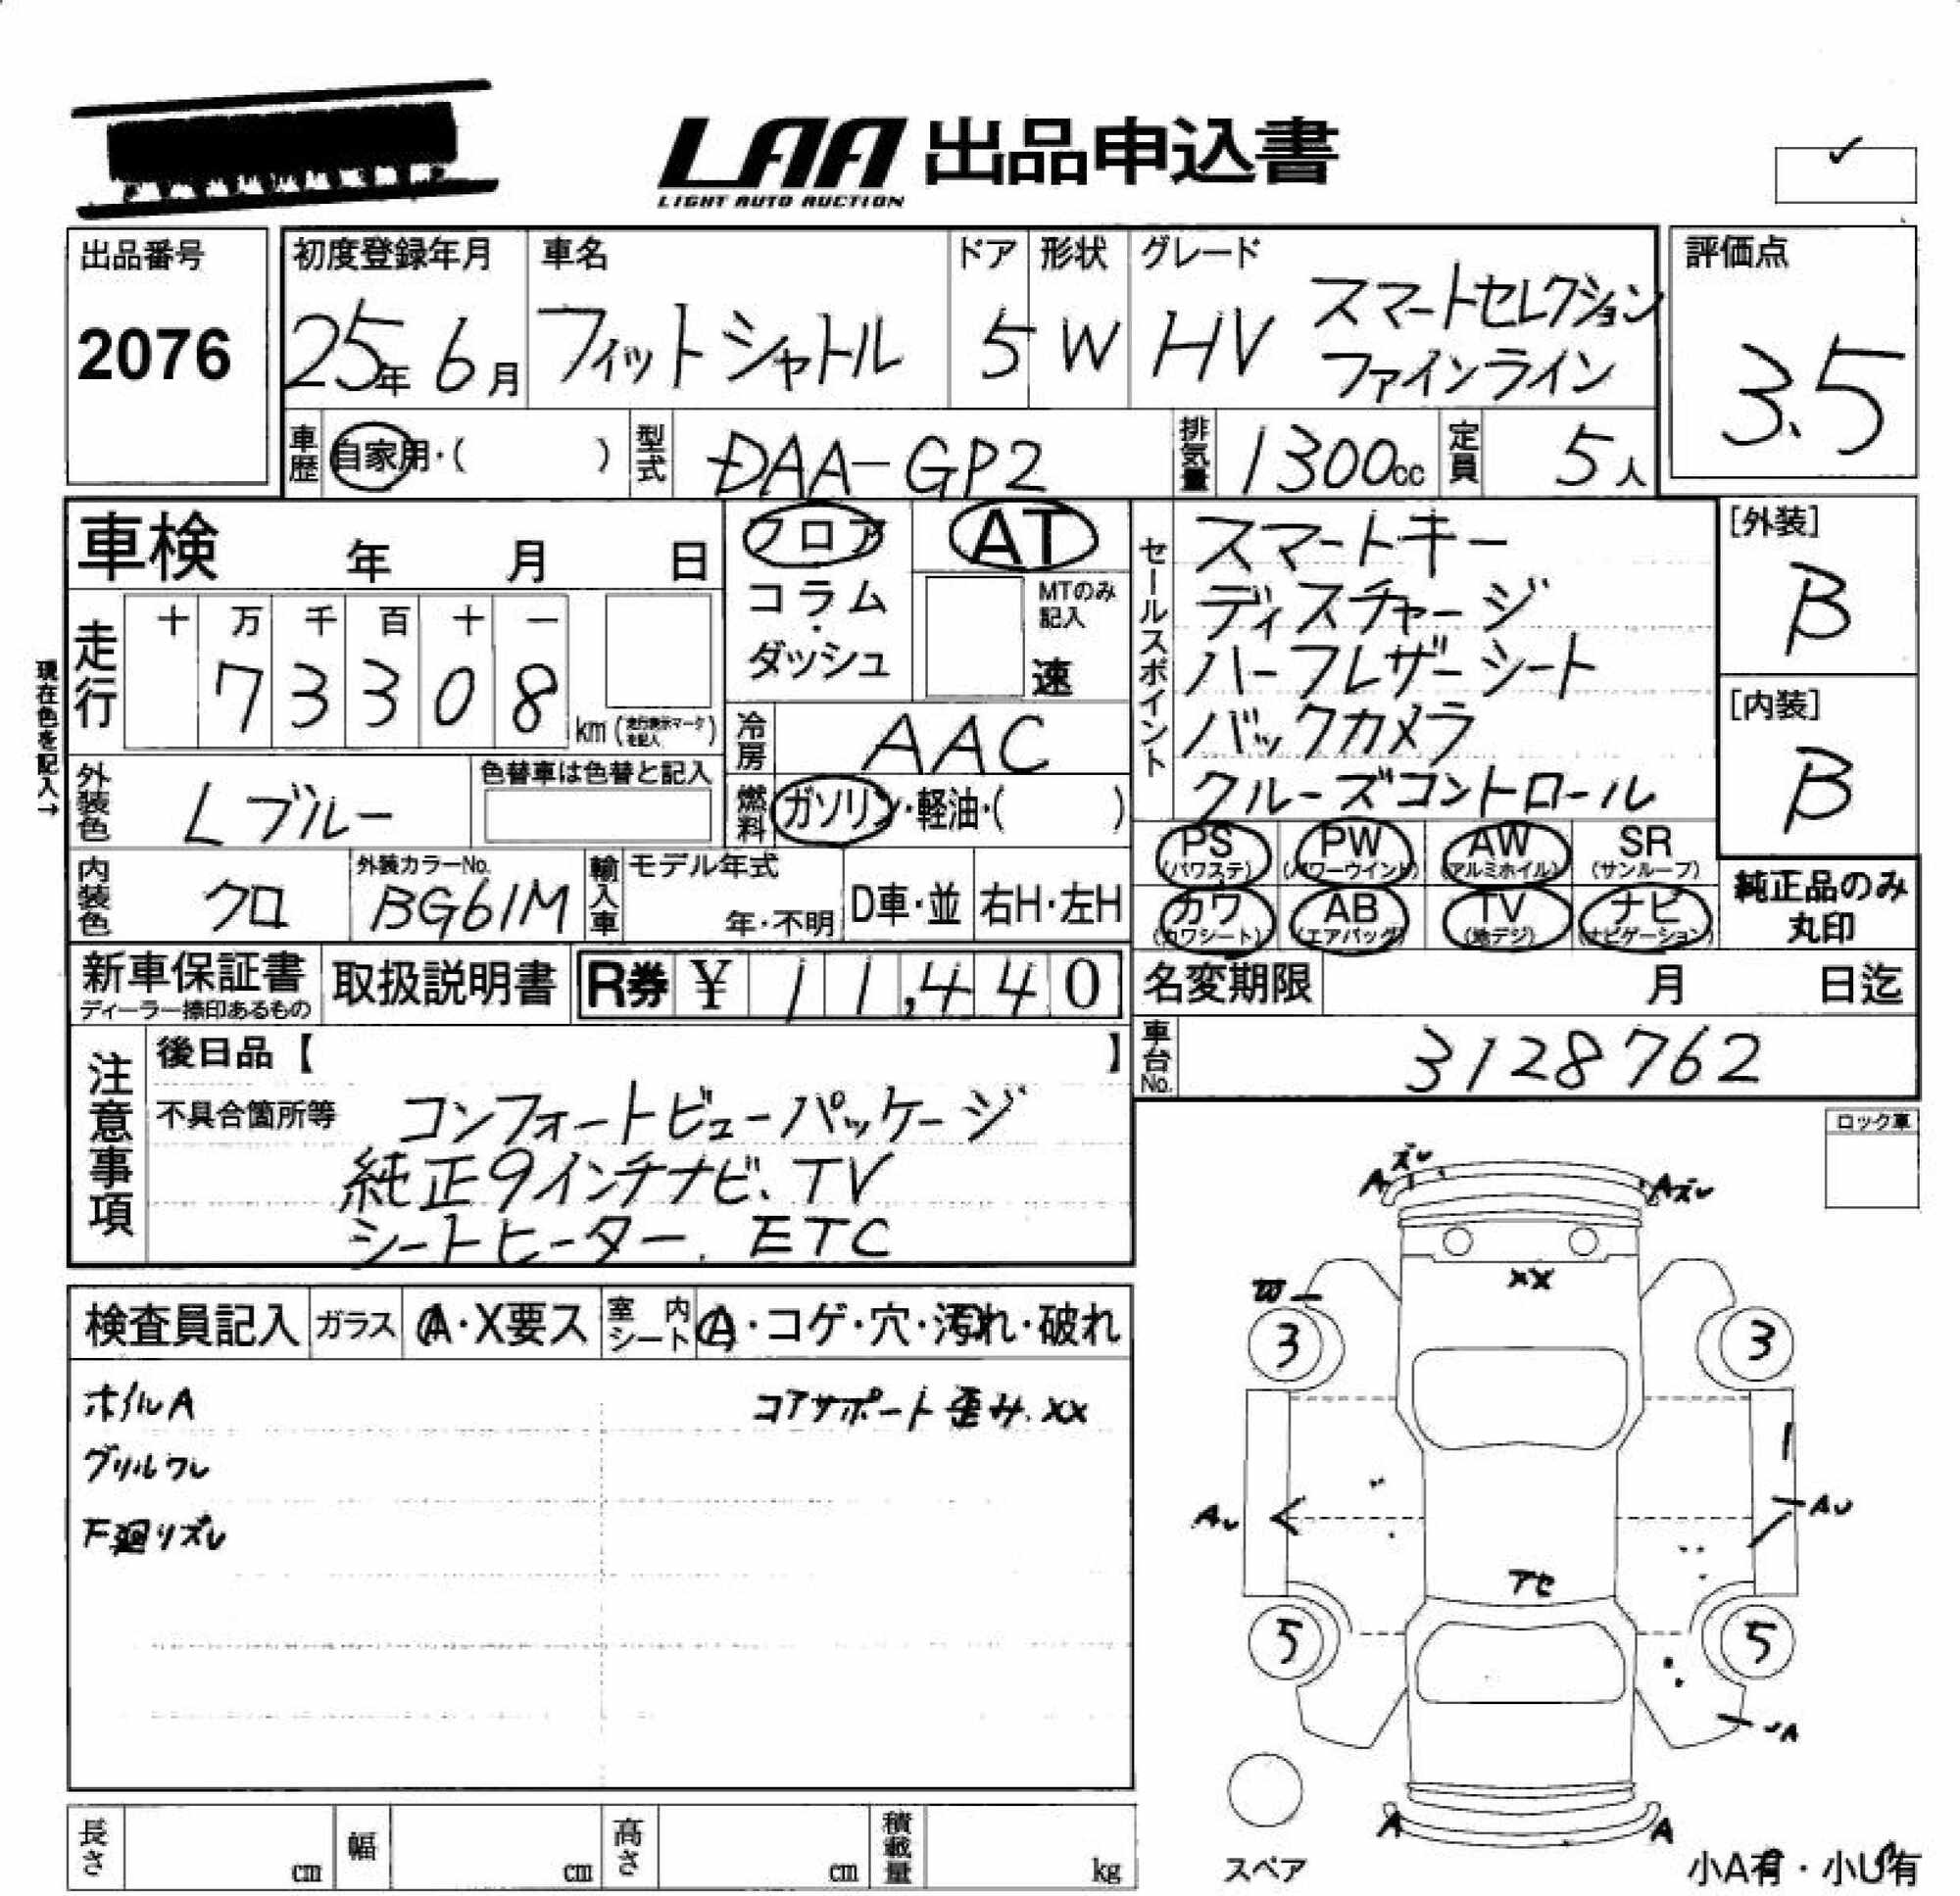 LAA 出品申込書
LIGHT AUTO AUCTION
✓
出品番号
2076
初度登録年月
25年 6月
車名
フィットシャトル
ドア
5
形状
W
グレード
HV スマートセレクション
ファインライン
評価点
3.5
車歴
自家用・( )
型式
DAA-GP2
排気量
1300cc
定員
5人
車検 年 月 日
フロア
コラム
・
ダッシュ
AT
MTのみ
記入
速
セールスポイント
スマートキー
ディスチャージ
ハーフレザーシート
バックカメラ
クルーズコントロール
[外装]
B
[内装]
B
現在色を記入→
走行
十 万 千 百 十 一
7 3 3 0 8
km (走行表示マークを記入)
冷房
AAC
外装色
Lブルー
色替車は色替と記入
燃料
ガソリン・軽油・( )
内装色
クロ
外装カラーNo.
BG61M
輸入車
モデル年式
年・不明
D車・並
右H・左H
PS (パワステ)
PW (パワーウインド)
AW (アルミホイル)
SR (サンルーフ)
カワ (カワシート)
AB (エアバッグ)
TV (地デジ)
ナビ (ナビゲーション)
純正品のみ
丸印
新車保証書
ディーラー捺印あるもの
取扱説明書
R券 ¥ 11,440
名変期限 月 日迄
車台No.
3128762
注意事項
後日品【 】
不具合箇所等 コンフォートビューパッケージ
純正9インチナビ、TV
シートヒーター、ETC
ロック車
検査員記入
ガラス
A・X要ス
室内シート
A・コゲ・穴・汚れ・破れ
ホイルA
コアサポート歪み、XX
グリルワレ
下廻りズレ
A ズレ
Aズレ
XX
W
3
3
AU
AU
アセ
5
5
UA
A
A
スペア
小A有・小U有
長さ cm
幅 cm
高さ cm
積載量 kg